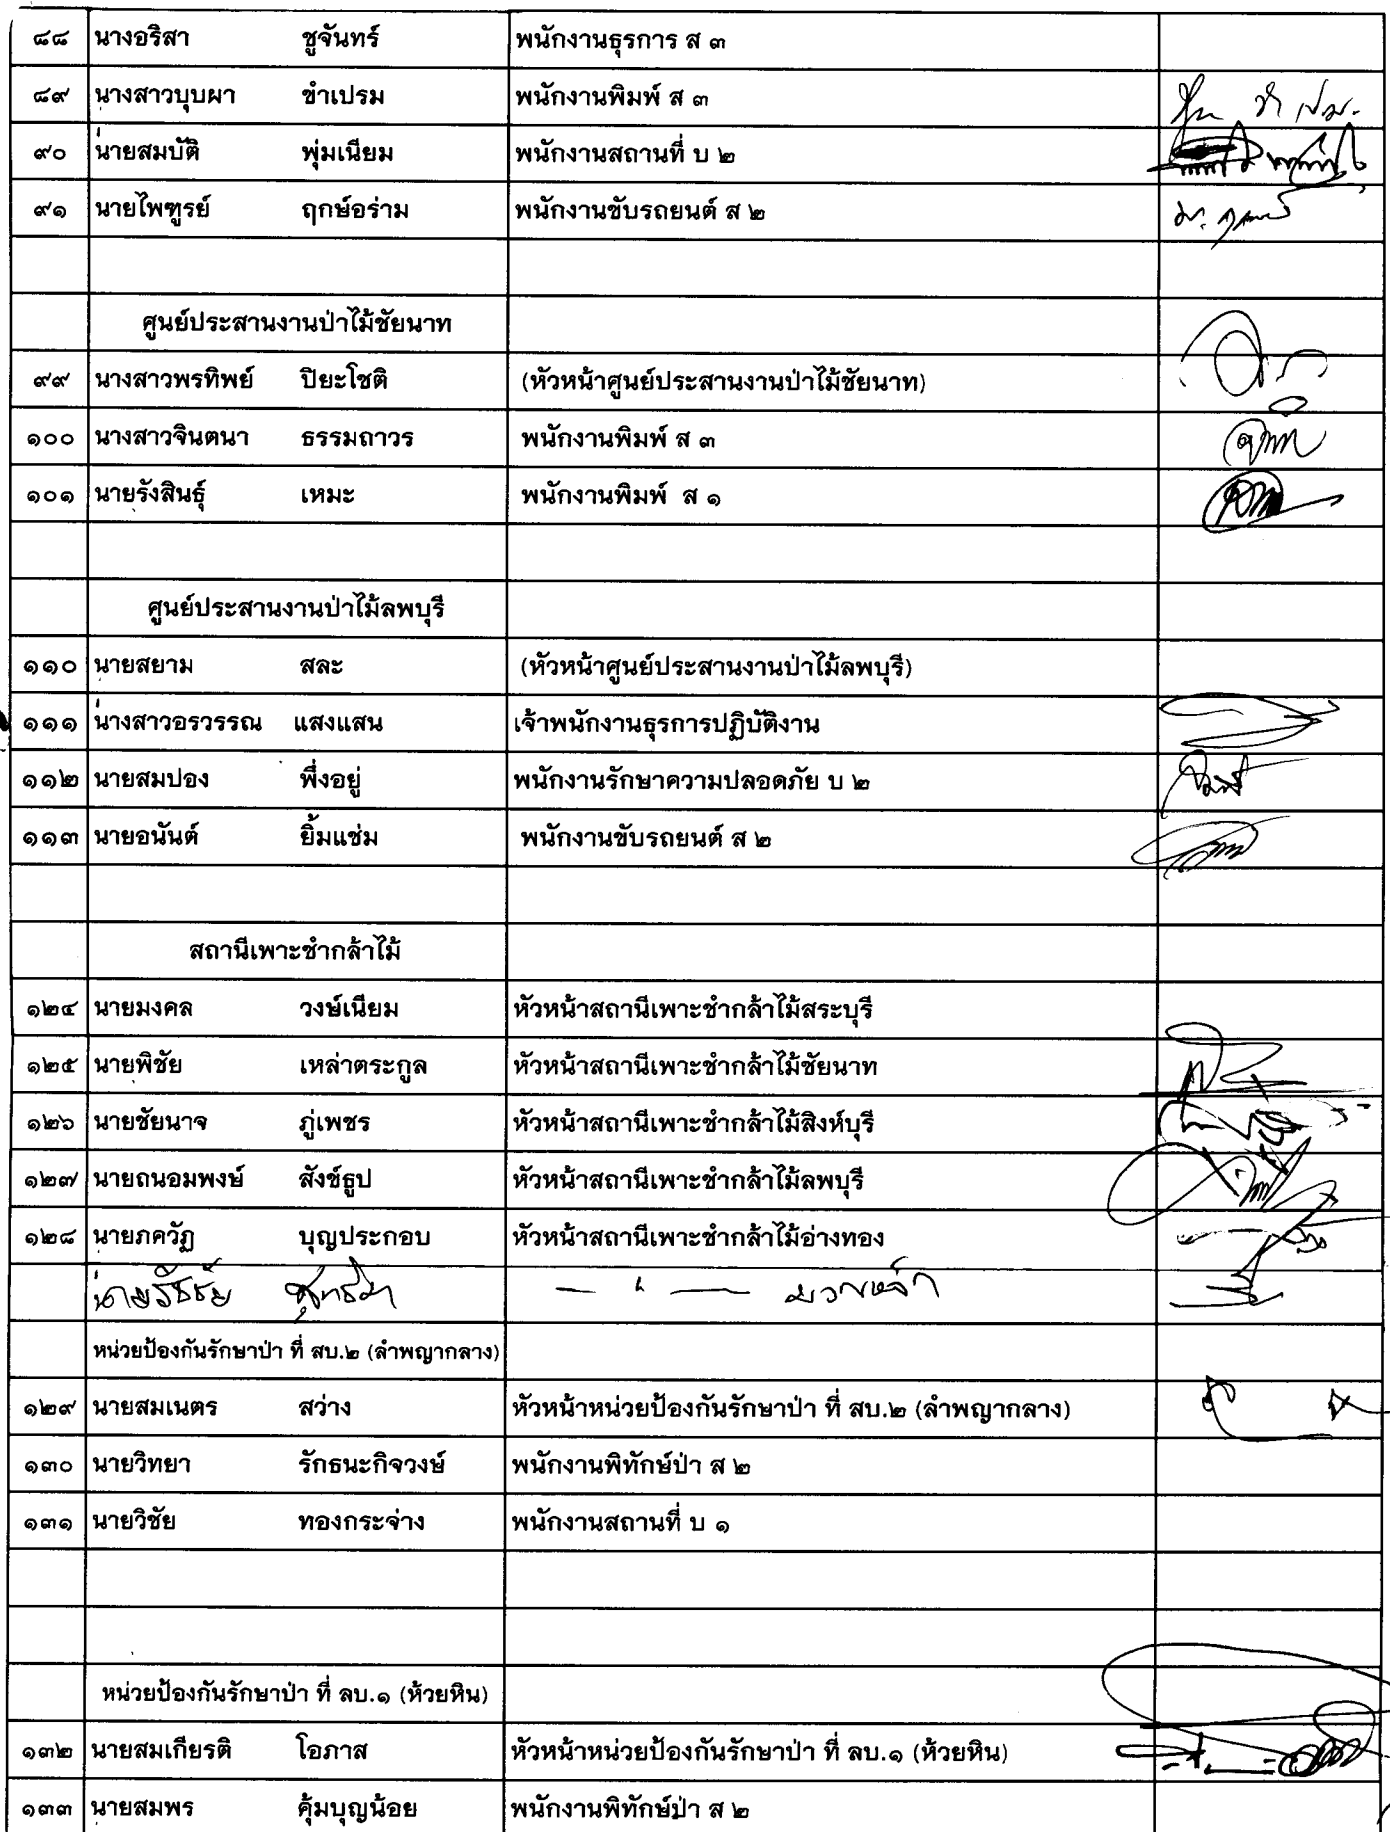 ๘๘ นางอริสา ชูจันทร์ พนักงานธุรการ ส ๓
๘๙ นางสาวบุบผา ขำเปรม พนักงานพิมพ์ ส ๓
๙๐ นายสมบัติ พุ่มเนียม พนักงานสถานที่ บ ๒
๙๑ นายไพฑูรย์ ฤกษ์อร่าม พนักงานขับรถยนต์ ส ๒
ศูนย์ประสานงานป่าไม้ชัยนาท
๙๙ นางสาวพรทิพย์ ปิยะโชติ (หัวหน้าศูนย์ประสานงานป่าไม้ชัยนาท)
๑๐๐ นางสาวจินตนา ธรรมถาวร พนักงานพิมพ์ ส ๓
๑๐๑ นายรังสินธุ์ เหมะ พนักงานพิมพ์ ส ๑
ศูนย์ประสานงานป่าไม้ลพบุรี
๑๑๐ นายสยาม สละ (หัวหน้าศูนย์ประสานงานป่าไม้ลพบุรี)
๑๑๑ นางสาวอรวรรณ แสงแสน เจ้าพนักงานธุรการปฏิบัติงาน
๑๑๒ นายสมปอง พึ่งอยู่ พนักงานรักษาความปลอดภัย บ ๒
๑๑๓ นายอนันต์ ยิ้มแช่ม พนักงานขับรถยนต์ ส ๒
สถานีเพาะชำกล้าไม้
๑๒๔ นายมงคล วงษ์เนียม หัวหน้าสถานีเพาะชำกล้าไม้สระบุรี
๑๒๕ นายพิชัย เหล่าตระกูล หัวหน้าสถานีเพาะชำกล้าไม้ชัยนาท
๑๒๖ นายชัยนาจ ภู่เพชร หัวหน้าสถานีเพาะชำกล้าไม้สิงห์บุรี
๑๒๗ นายถนอมพงษ์ สังข์ธูป หัวหน้าสถานีเพาะชำกล้าไม้ลพบุรี
๑๒๘ นายภควัฏ บุญประกอบ หัวหน้าสถานีเพาะชำกล้าไม้อ่างทอง
หน่วยป้องกันรักษาป่า ที่ สบ.๒ (ลำพญากลาง)
๑๒๙ นายสมเนตร สว่าง หัวหน้าหน่วยป้องกันรักษาป่า ที่ สบ.๒ (ลำพญากลาง)
๑๓๐ นายวิทยา รักธนะกิจวงษ์ พนักงานพิทักษ์ป่า ส ๒
๑๓๑ นายวิชัย ทองกระจ่าง พนักงานสถานที่ บ ๑
หน่วยป้องกันรักษาป่า ที่ ลบ.๑ (ห้วยหิน)
๑๓๒ นายสมเกียรติ โอภาส หัวหน้าหน่วยป้องกันรักษาป่า ที่ ลบ.๑ (ห้วยหิน)
๑๓๓ นายสมพร คุ้มบุญน้อย พนักงานพิทักษ์ป่า ส ๒